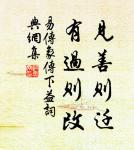 見善則迁
有過則改
易傳象傳下益詞
典綱集